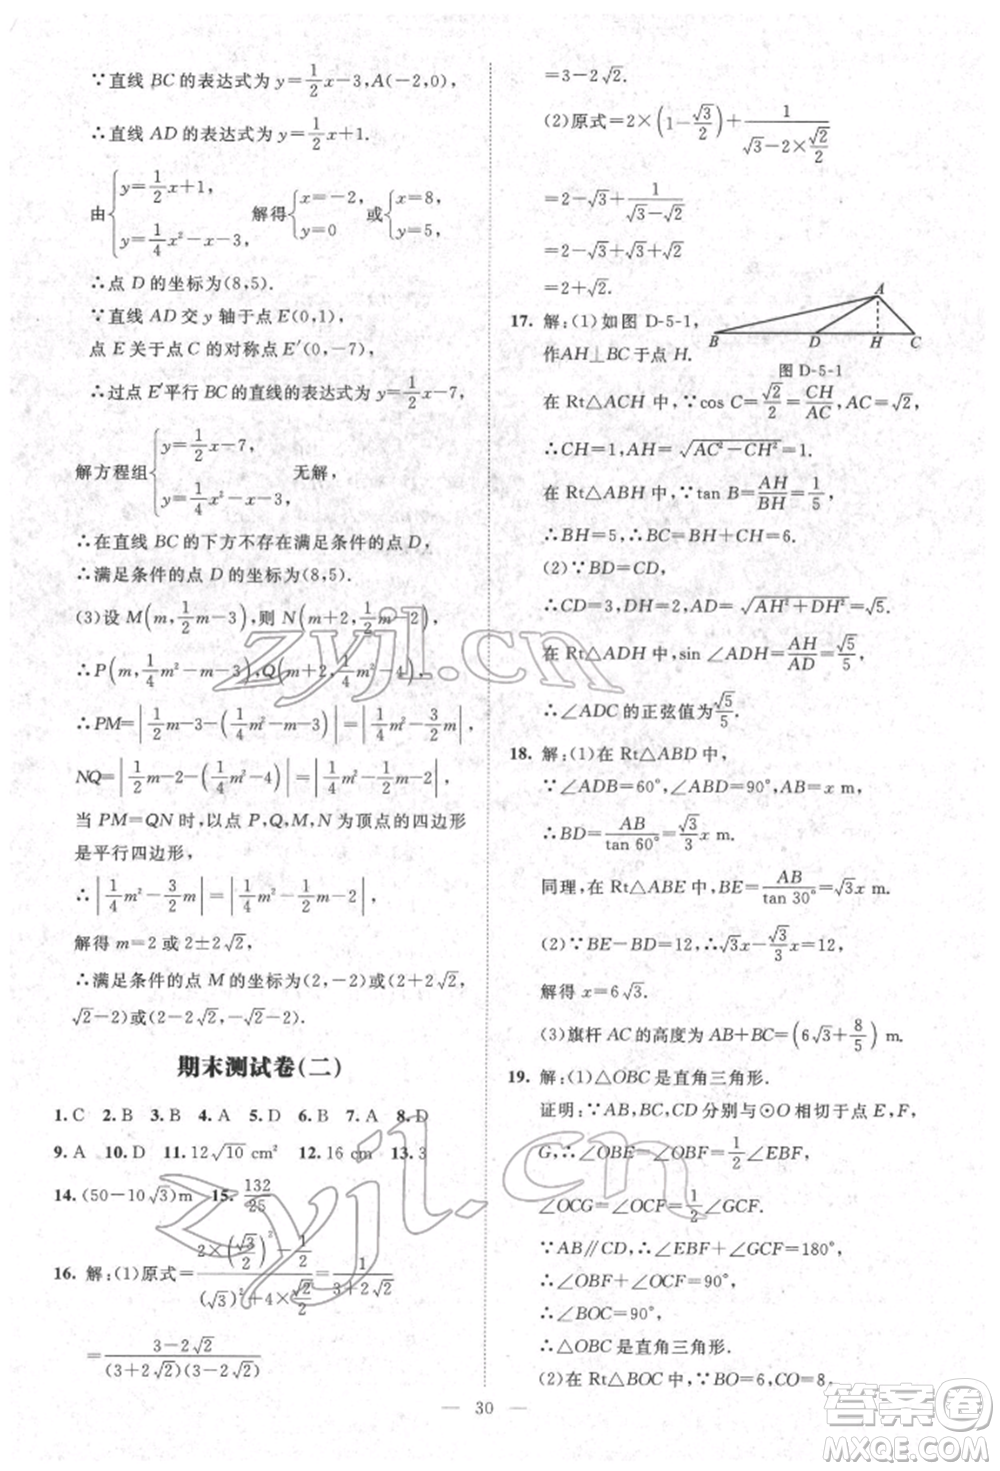 ∵直线 BC 的表达式为 y=1/2x-3,A(-2,0),
∴直线 AD 的表达式为 y=1/2x+1.
由{y=1/2x+1, y=1/4x²-x-3, 解得{x=-2, y=0 或{x=8, y=5.
∴点 D 的坐标为(8,5).
∵直线 AD 交 y 轴于点 E(0,1),
点 E 关于点 C 的对称点 E′(0,-7),
∴过点 E′平行 BC 的直线的表达式为 y=1/2x-7,
解方程组{y=1/2x-7, y=1/4x²-x-3, 无解,
∴在直线 BC 的下方不存在满足条件的点 D,
∴满足条件的点 D 的坐标为(8,5).
(3)设 M(m,1/2m-3),则 N(m+2,1/2m-2),
∴P(m,1/4m²-m-3),Q(m+2,1/4m²-4),
∴PM=|1/2m-3-(1/4m²-m-3)|=|1/4m²-3/2m|,
NQ=|1/2m-2-(1/4m²-4)|=|1/4m²-1/2m-2|,
当 PM=QN 时,以点 P,Q,M,N 为顶点的四边形
是平行四边形,
∴|1/4m²-3/2m|=|1/4m²-1/2m-2|,
解得 m=2 或 2±2√2,
∴满足条件的点 M 的坐标为(2,-2)或(2+2√2,
√2-2)或(2-2√2,-√2-2).
期末测试卷(二)
1.C 2.B 3.B 4.A 5.D 6.B 7.A 8.D
9.A 10.D 11.12√10 cm² 12.16 cm 13.3
14.(50-10√3)m 15.132/25
16.解:(1)原式=(2×(√3/2)²-1/2)/((√3)²+4×√2/2)=1/(3+2√2)
=(3-2√2)/((3+2√2)(3-2√2))
=3-2√2.
(2)原式=2×(1-√3/2)+1/(√3-2×√2/2)
=2-√3+1/(√3-√2)
=2-√3+√3+√2
=2+√2.
17.解:(1)如图 D-5-1,
作AH⊥BC于点 H.
A
B D H C
图 D-5-1
在 Rt△ACH 中,∵cos C=√2/2=CH/AC,AC=√2,
∴CH=1,AH=√(AC²-CH²)=1.
在 Rt△ABH 中,∵tan B=AH/BH=1/5,
∴BH=5,∴BC=BH+CH=6.
(2)∵BD=CD,
∴CD=3,DH=2,AD=√(AH²+DH²)=√5.
在 Rt△ADH 中,sin ∠ADH=AH/AD=√5/5,
∴∠ADC的正弦值为√5/5.
18.解:(1)在 Rt△ABD 中,
∵∠ADB=60°,∠ABD=90°,AB=x m,
∴BD=AB/tan 60°=√3/3x m.
同理,在 Rt△ABE 中,BE=AB/tan 30°=√3x m.
(2)∵BE-BD=12,∴√3x-√3/3x=12,
解得 x=6√3.
(3)旗杆 AC 的高度为 AB+BC=(6√3+8/5)m.
19.解:(1)△OBC 是直角三角形.
证明:∵AB,BC,CD 分别与⊙O 相切于点 E,F,
G,∴∠OBE=∠OBF=1/2∠EBF,
∠OCG=∠OCF=1/2∠GCF.
∵AB∥CD,∴∠EBF+∠GCF=180°,
∴∠OBF+∠OCF=90°,
∴∠BOC=90°,
∴△OBC是直角三角形.
(2)在 Rt△BOC 中,∵BO=6,CO=8,
30
zyjl.cn
zyjl.cn
答案圈
MXQE.COM